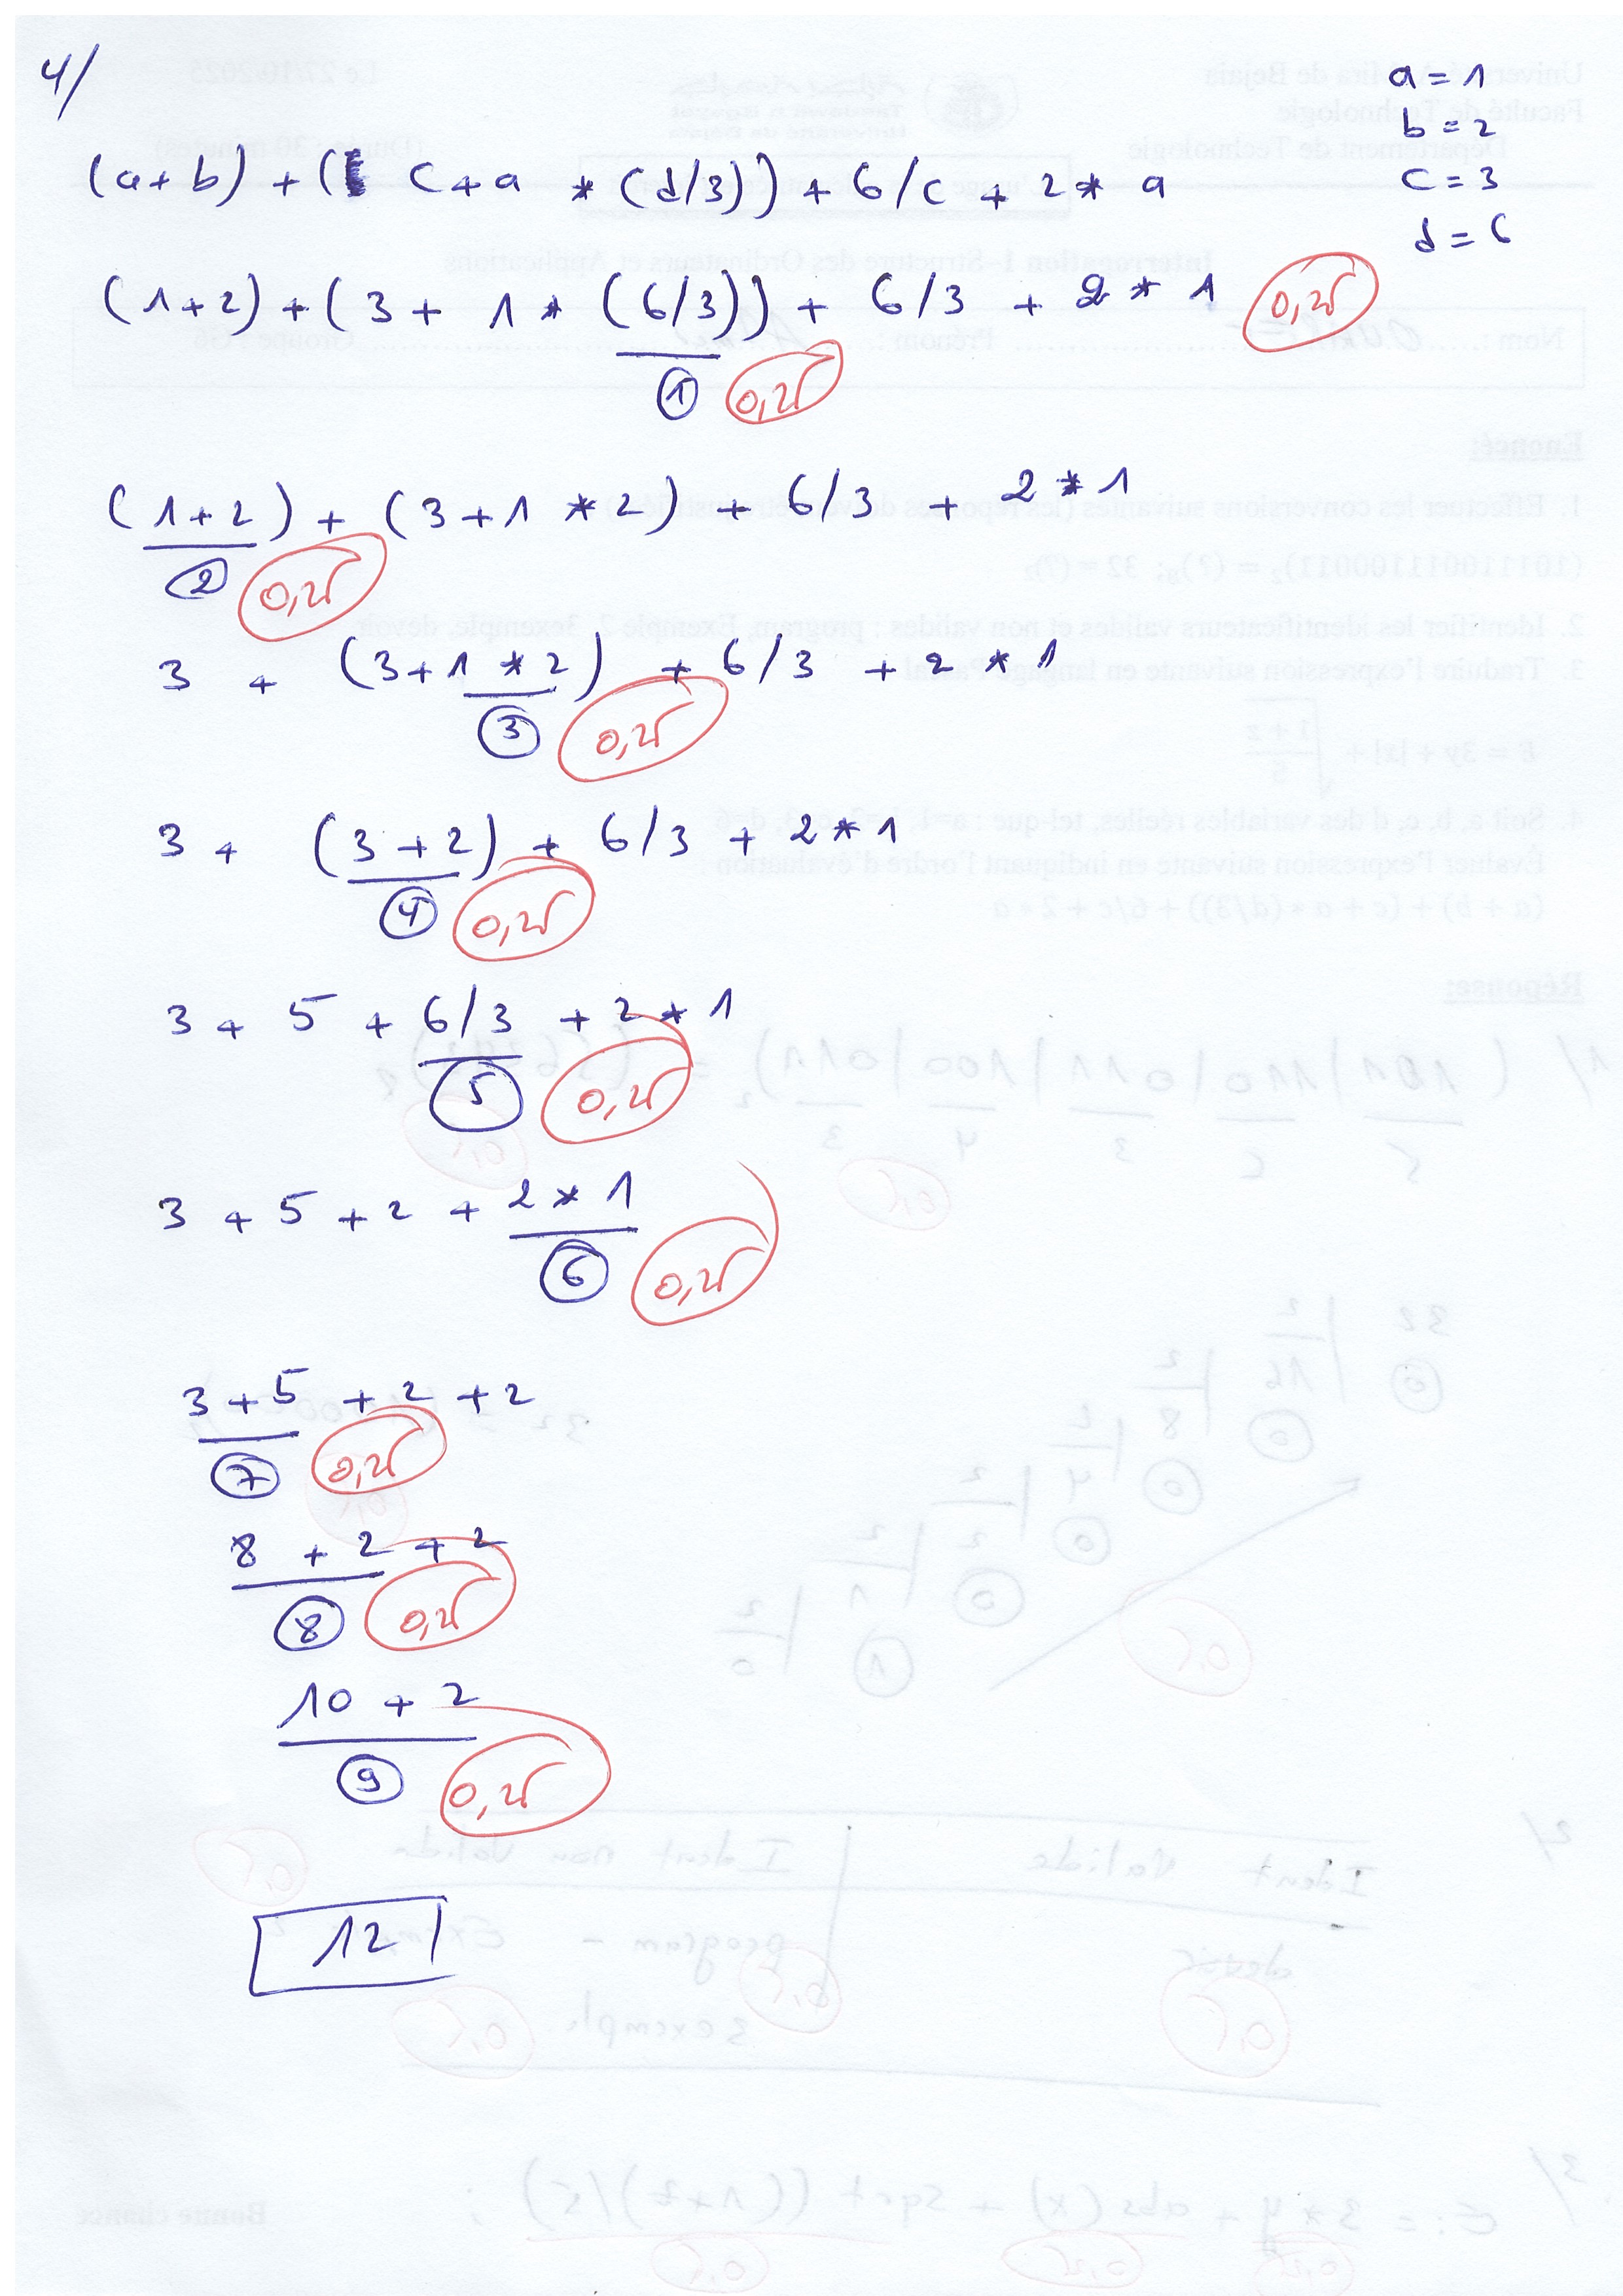 4/
a = 1
b = 2
c = 3
d = 6
(a+b) + ( c+a * (d/3)) + 6/c + 2* a
(1+2) + (3+ 1 * (6/3)) + 6/3 + 2 * 1 0,25
1 0,25
(1+2) + (3+1 *2) + 6/3 + 2*1
2 0,25
3 + (3+1 *2) + 6/3 + 2 *1
3 0,25
3 + (3+2) + 6/3 + 2*1
4 0,25
3 + 5 + 6/3 + 2*1
5 0,25
3 + 5 + 2 + 2*1
6 0,25
3+5 +2 +2
7 0,25
8 +2 +2
8 0,25
10 + 2
9 0,25
12